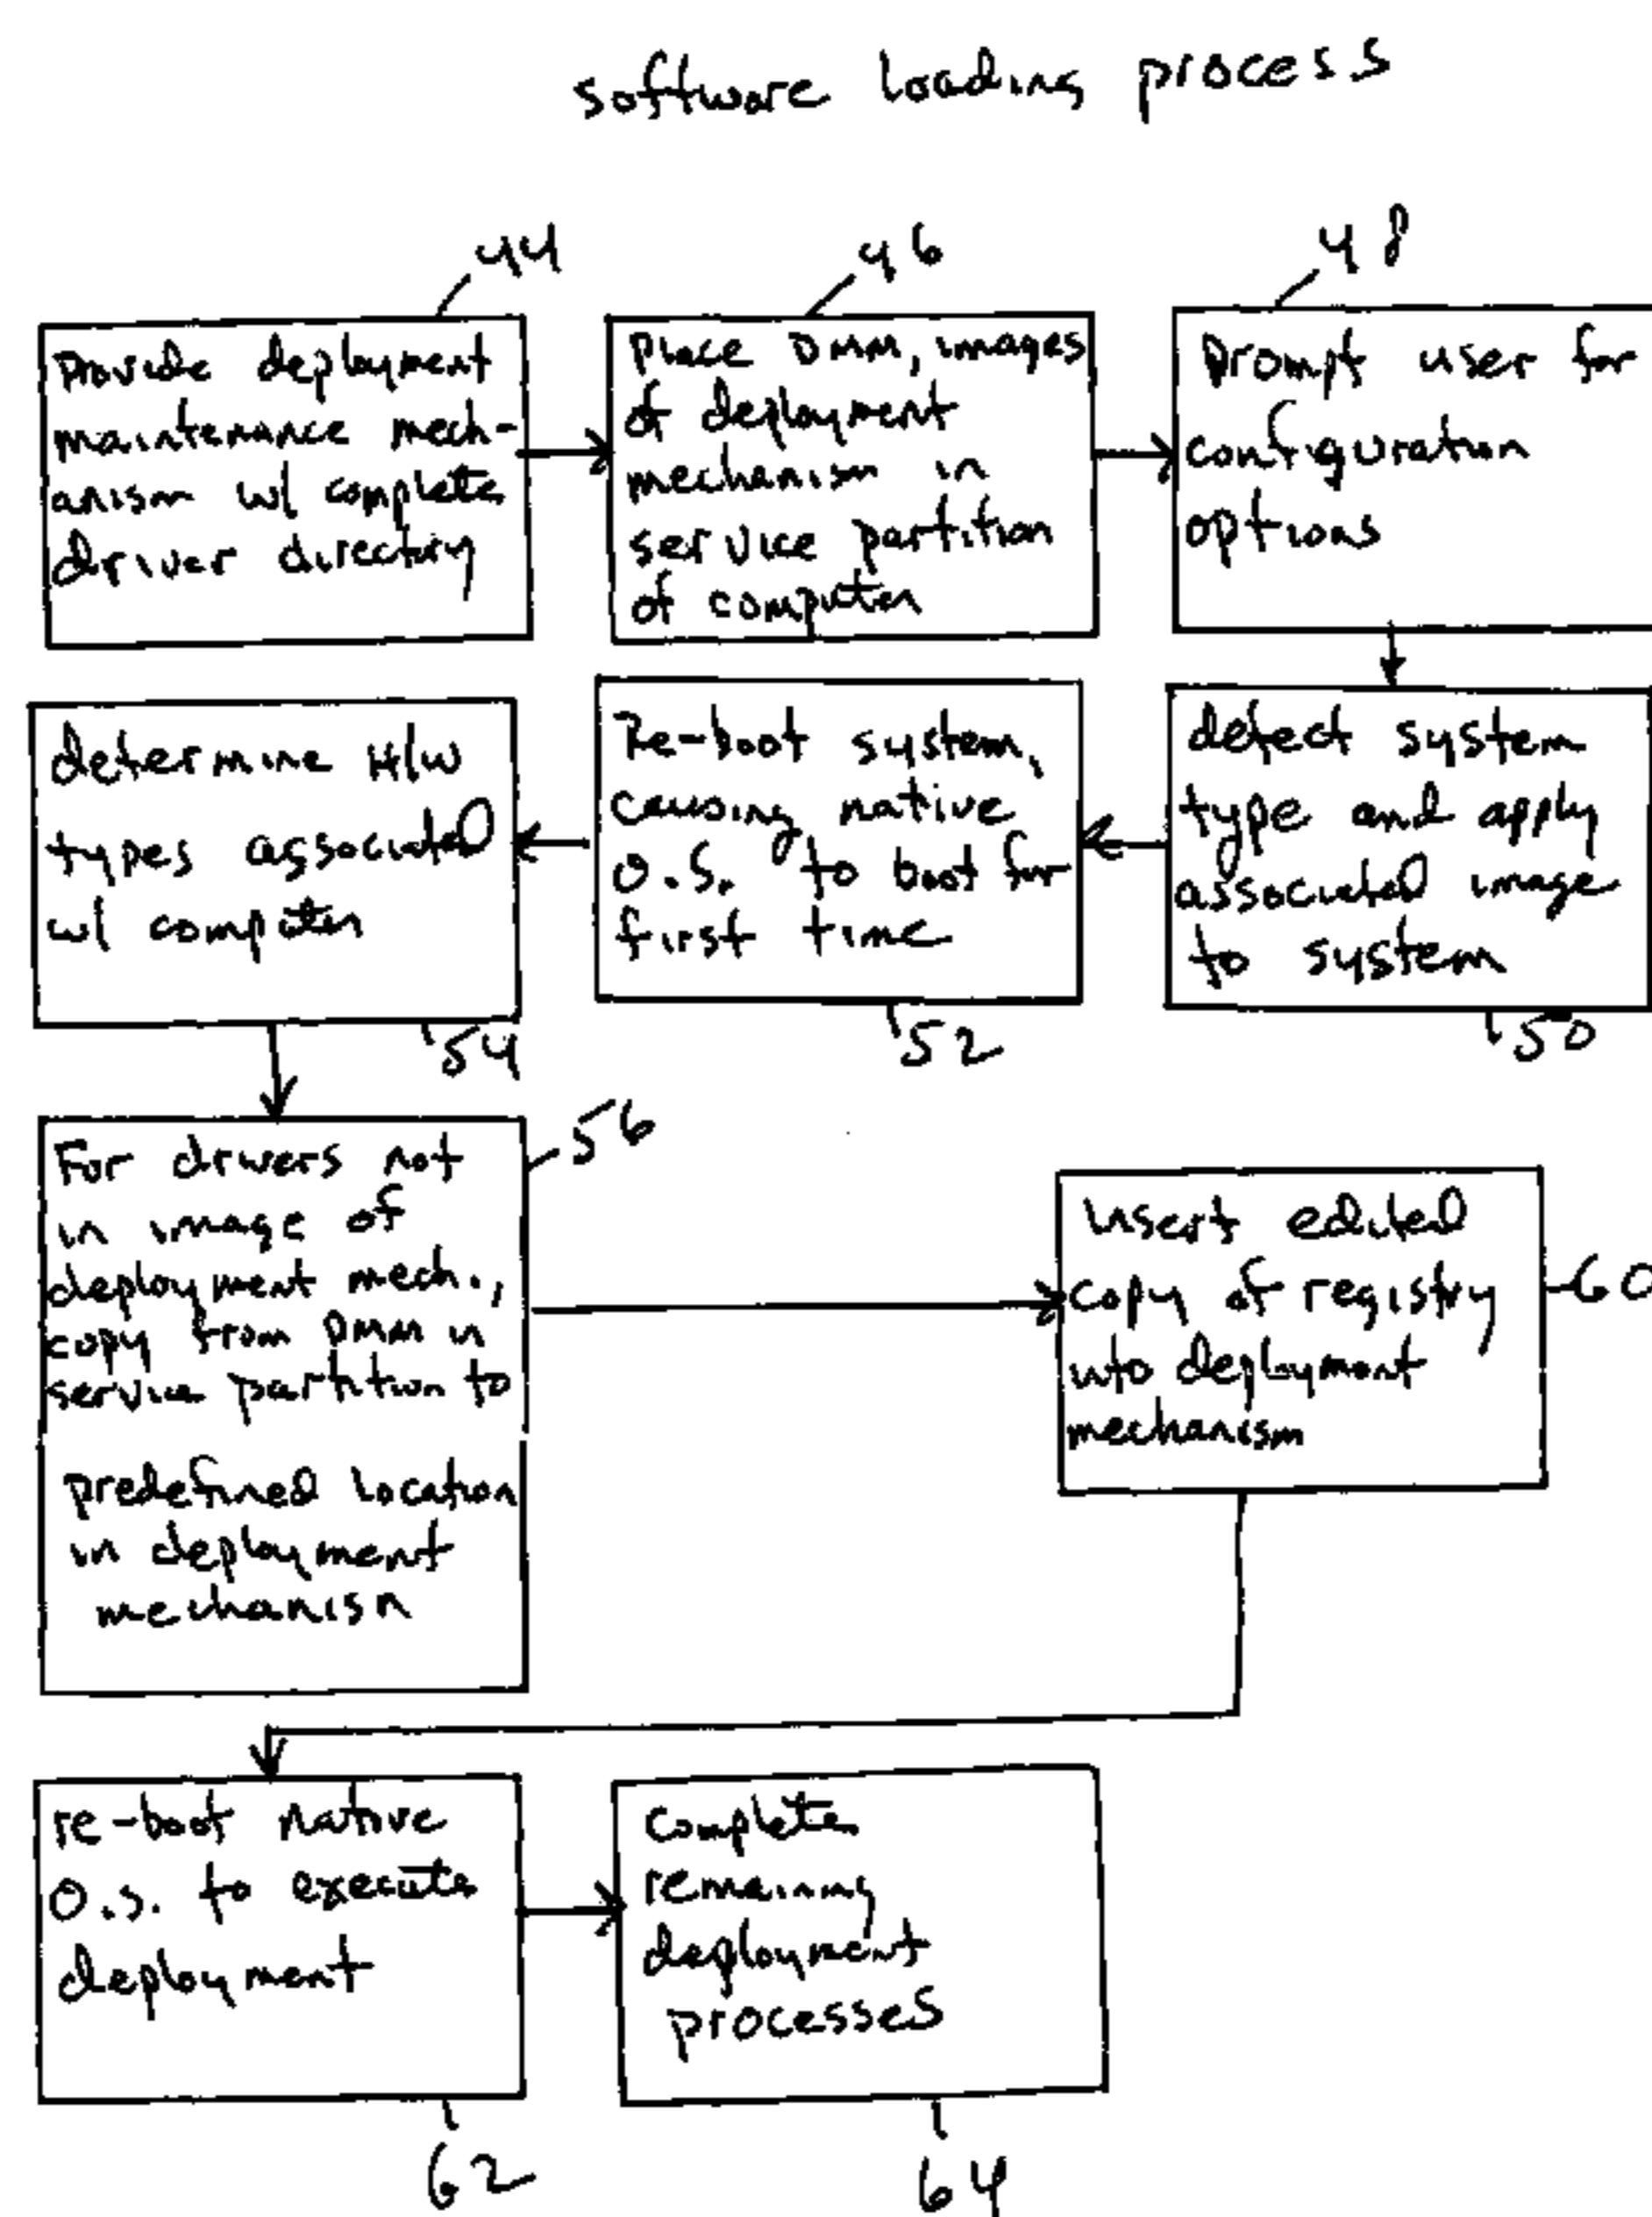 software loading process
44
Provide deployment
maintenance mech-
anism w/ complete
driver directory
46
Place DMM, images
of deployment
mechanism in
service partition
of computer
48
Prompt user for
configuration
options
detect system
type and apply
associated image
to system
50
Re-boot system,
causing native
O.S. to boot for
first time
52
determine H/W
types associated
w/ computer
54
56
For drivers not
in image of
deployment mech.,
copy from DMM in
service partition to
predefined location
in deployment
mechanism
Insert edited
copy of registry
into deployment
mechanism
60
re-boot native
O.S. to execute
deployment
62
Complete
remaining
deployment
processes
64